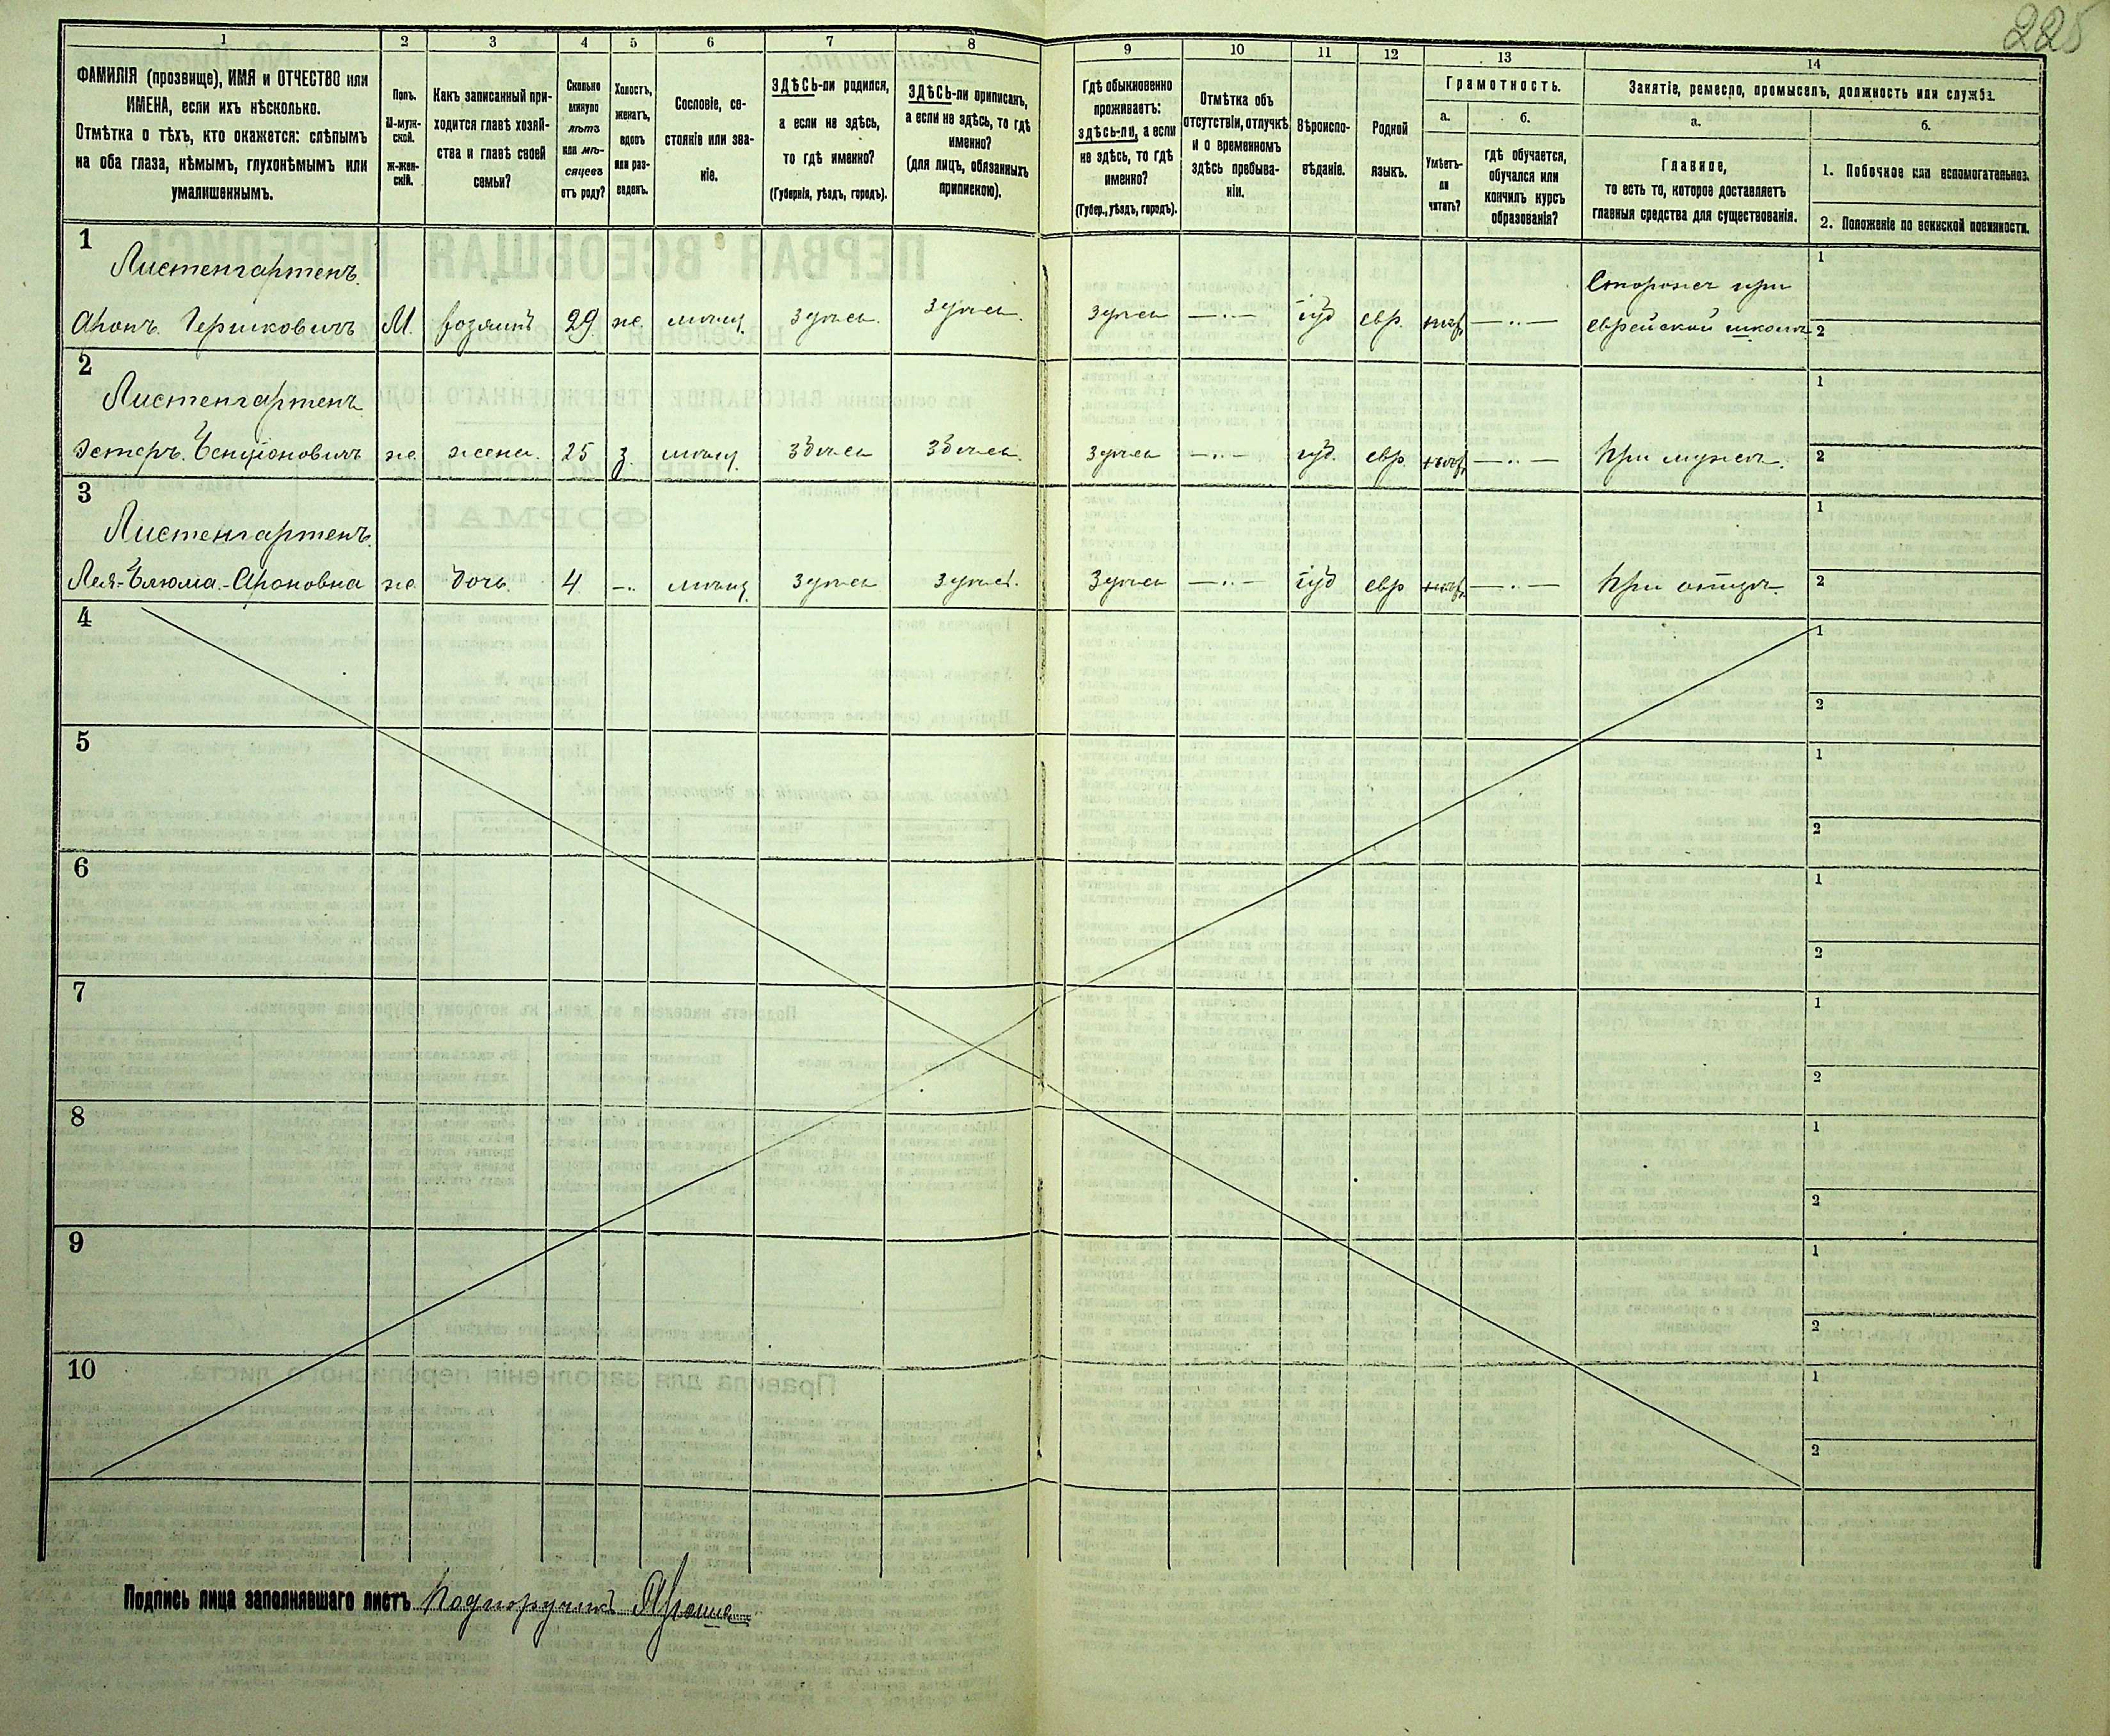 225
1
2
3
4
5
6
7
8
9
10
11
12
13
14
ФАМИЛІЯ (прозвище), ИМЯ и ОТЧЕСТВО или
ИМЕНА, если ихъ нѣсколько.
Отмѣтка о тѣхъ, кто окажется: слѣпымъ
на оба глаза, нѣмымъ, глухонѣмымъ или
умалишеннымъ.
Полъ.
М-муж-
ской.
Ж-жен-
скій.
Какъ записанный при-
ходится главѣ хозяй-
ства и главѣ своей
семьи?
Сколько
минуло
лѣтъ
или мѣ-
сяцевъ
отъ роду?
Холостъ,
женатъ,
вдовъ
или раз-
веденъ.
Сословіе, со-
стояніе или зва-
ніе.
ЗДѢСЬ-ли родился,
а если не здѣсь,
то гдѣ именно?
(Губернія, уѣздъ, городъ).
ЗДѢСЬ-ли приписанъ,
а если не здѣсь, то гдѣ
именно?
(для лицъ, обязанныхъ
припискою).
Гдѣ обыкновенно
проживаетъ:
здѣсь-ли, а если
не здѣсь, то гдѣ
именно?
(Губер., уѣздъ, городъ).
Отмѣтка объ
отсутствіи, отлучкѣ
и о временномъ
здѣсь пребыва-
ніи.
Вѣроиспо-
вѣданіе.
Родной
языкъ.
Грамотность.
а.
б.
Умѣетъ-
ли
читать?
гдѣ обучается,
обучался или
кончилъ курсъ
образованія?
Занятіе, ремесло, промыселъ, должность или служба.
а.
б.
Главное,
то есть то, которое доставляетъ
главныя средства для существованія.
1. Побочное или вспомогательное.
2. Положеніе по воинской повинности.
1
Листенгартенъ.
Аронъ. Гершковичъ М. хозяинъ 29 ж. мѣщ. Здѣсь. Здѣсь. Здѣсь —.— іуд евр. нѣтъ —..— Сторожъ при
еврейской школѣ
1
2
2
Листенгартенъ
Эстеръ. ж. жена. 25 з. мѣщ. Здѣсь Здѣсь. Здѣсь —.— іуд. евр. нѣтъ —..— При мужѣ.
1
2
3
Листенгартенъ.
Лея-Блюма.-Ароновна ж. дочь. 4 —.. мѣщ. Здѣсь Здѣсь. Здѣсь —..— іуд евр нѣтъ —.— При отцѣ.
1
2
4
1
2
5
1
2
6
1
2
7
1
2
8
1
2
9
1
2
10
1
2
Подпись лица заполнявшаго листъ Подпоручикъ